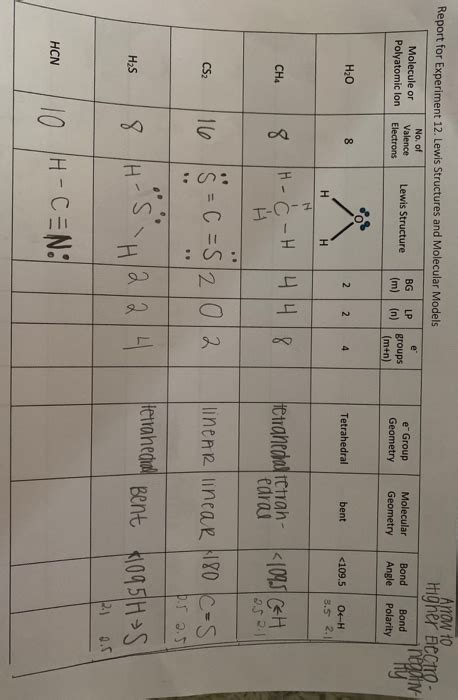 Report for Experiment 12. Lewis Structures and Molecular Models
Arrow to
Higher Electro
negativ
ity
Molecule or Polyatomic Ion | No. of Valence Electrons | Lewis Structure | BG (m) | LP (n) | e⁻ groups (m+n) | e⁻ Group Geometry | Molecular Geometry | Bond Angle | Bond Polarity
H₂O 8 H O H 2 2 4 Tetrahedral bent <109.5 O←H
3.5 2.1
H
CH₄ 8 H - C - H 4 4 8 tetrahedral tetrahedral <109.5 C←H
H
2.5 2.1
CS₂ 16 S = C = S 2 0 2 linear linear <180 C = S
2.5 2.5
H₂S 8 H - S - H 2 2 4 tetrahedral Bent <109.5 H→S
2.1 2.5
HCN 10 H - C ≡ N: